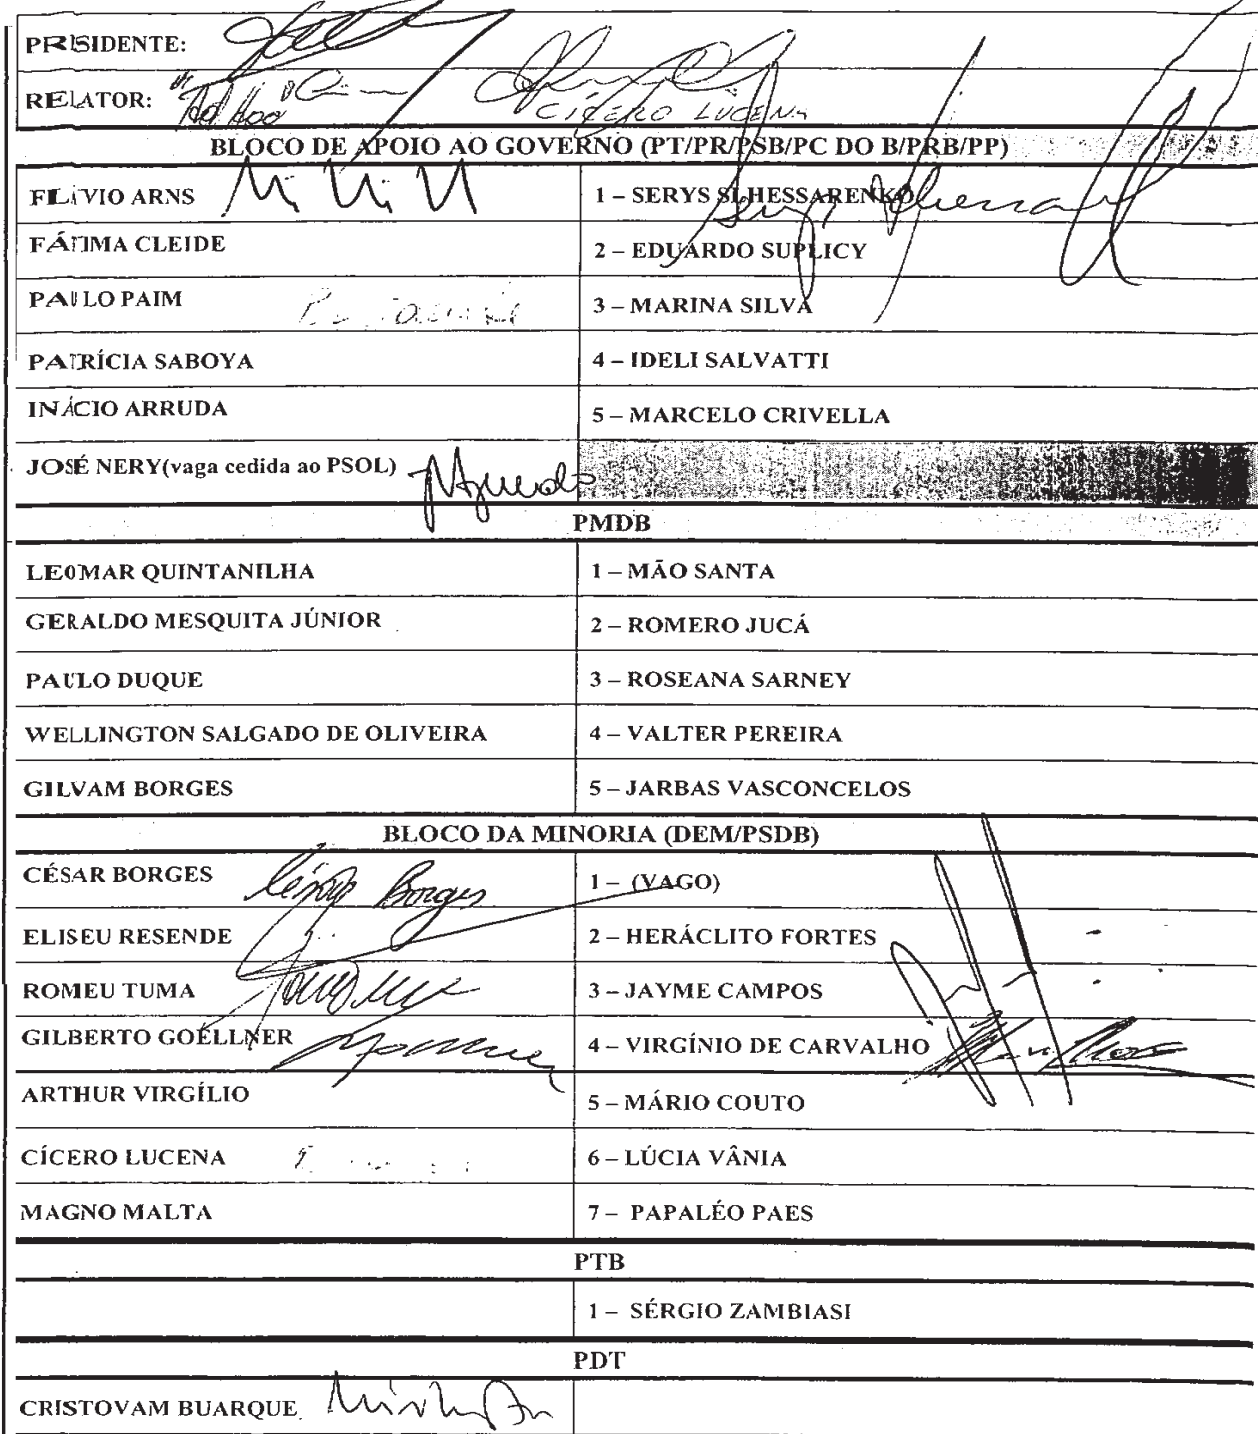 PRESIDENTE:
RELATOR: "Ad Hoc" CÍCERO LUCENA
BLOCO DE APOIO AO GOVERNO (PT/PR/PSB/PC DO B/PRB/PP)
FLÁVIO ARNS 1 – SERYS SLHESSARENKO
FÁTIMA CLEIDE 2 – EDUARDO SUPLICY
PAULO PAIM 3 – MARINA SILVA
PATRÍCIA SABOYA 4 – IDELI SALVATTI
INÁCIO ARRUDA 5 – MARCELO CRIVELLA
JOSÉ NERY(vaga cedida ao PSOL)
PMDB
LEOMAR QUINTANILHA 1 – MÃO SANTA
GERALDO MESQUITA JÚNIOR 2 – ROMERO JUCÁ
PAULO DUQUE 3 – ROSEANA SARNEY
WELLINGTON SALGADO DE OLIVEIRA 4 – VALTER PEREIRA
GILVAM BORGES 5 – JARBAS VASCONCELOS
BLOCO DA MINORIA (DEM/PSDB)
CÉSAR BORGES César Borges 1 – (VAGO)
ELISEU RESENDE 2 – HERÁCLITO FORTES
ROMEU TUMA 3 – JAYME CAMPOS
GILBERTO GOELLNER 4 – VIRGÍNIO DE CARVALHO
ARTHUR VIRGÍLIO 5 – MÁRIO COUTO
CÍCERO LUCENA 6 – LÚCIA VÂNIA
MAGNO MALTA 7 – PAPALÉO PAES
PTB
1 – SÉRGIO ZAMBIASI
PDT
CRISTOVAM BUARQUE